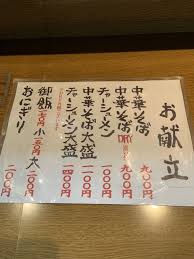 お献立
中華そば 九〇〇円
中華そばDRY 九〇〇円
チャーシューメン 一一〇〇円
中華そば大盛
チャーシューメン大盛 一四〇〇円
御飯 小 一五〇円 大 二〇〇円
おにぎり 二〇〇円